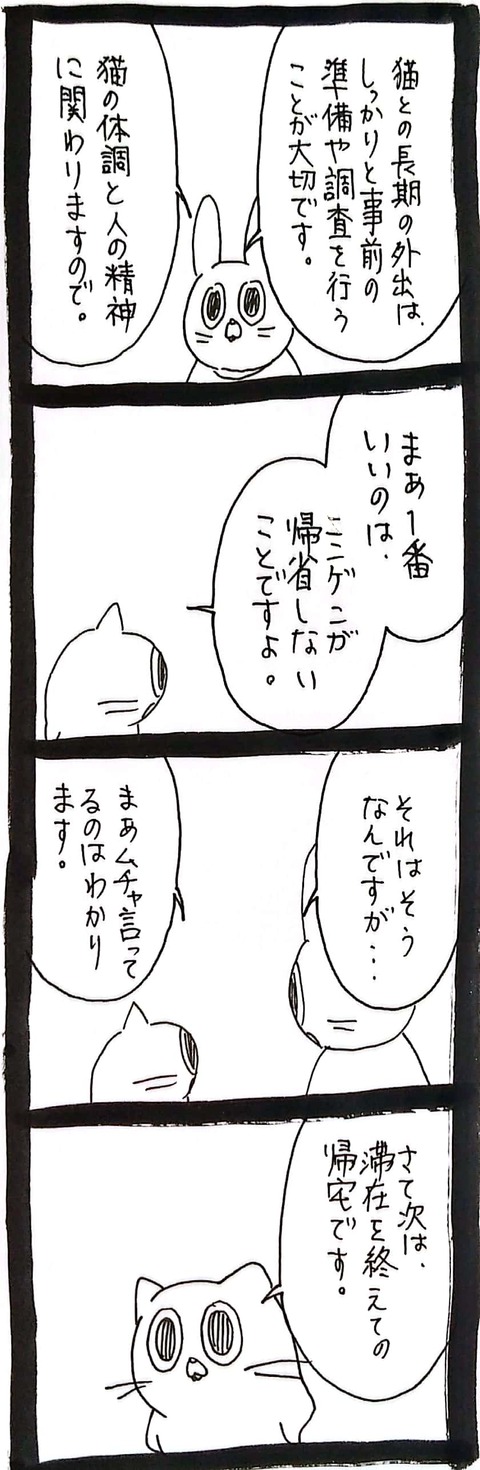 猫との長期の外出は、
しっかりと事前の
準備や調査を行う
ことが大切です。
猫の体調と人の精神
に関わりますので。
まあ1番
いいのは、
ニンゲンが
帰省しない
ことですよ。
それはそう
なんですが…
まあムチャ言って
るのはわかり
ます。
さて次は、
滞在を終えての
帰宅です。